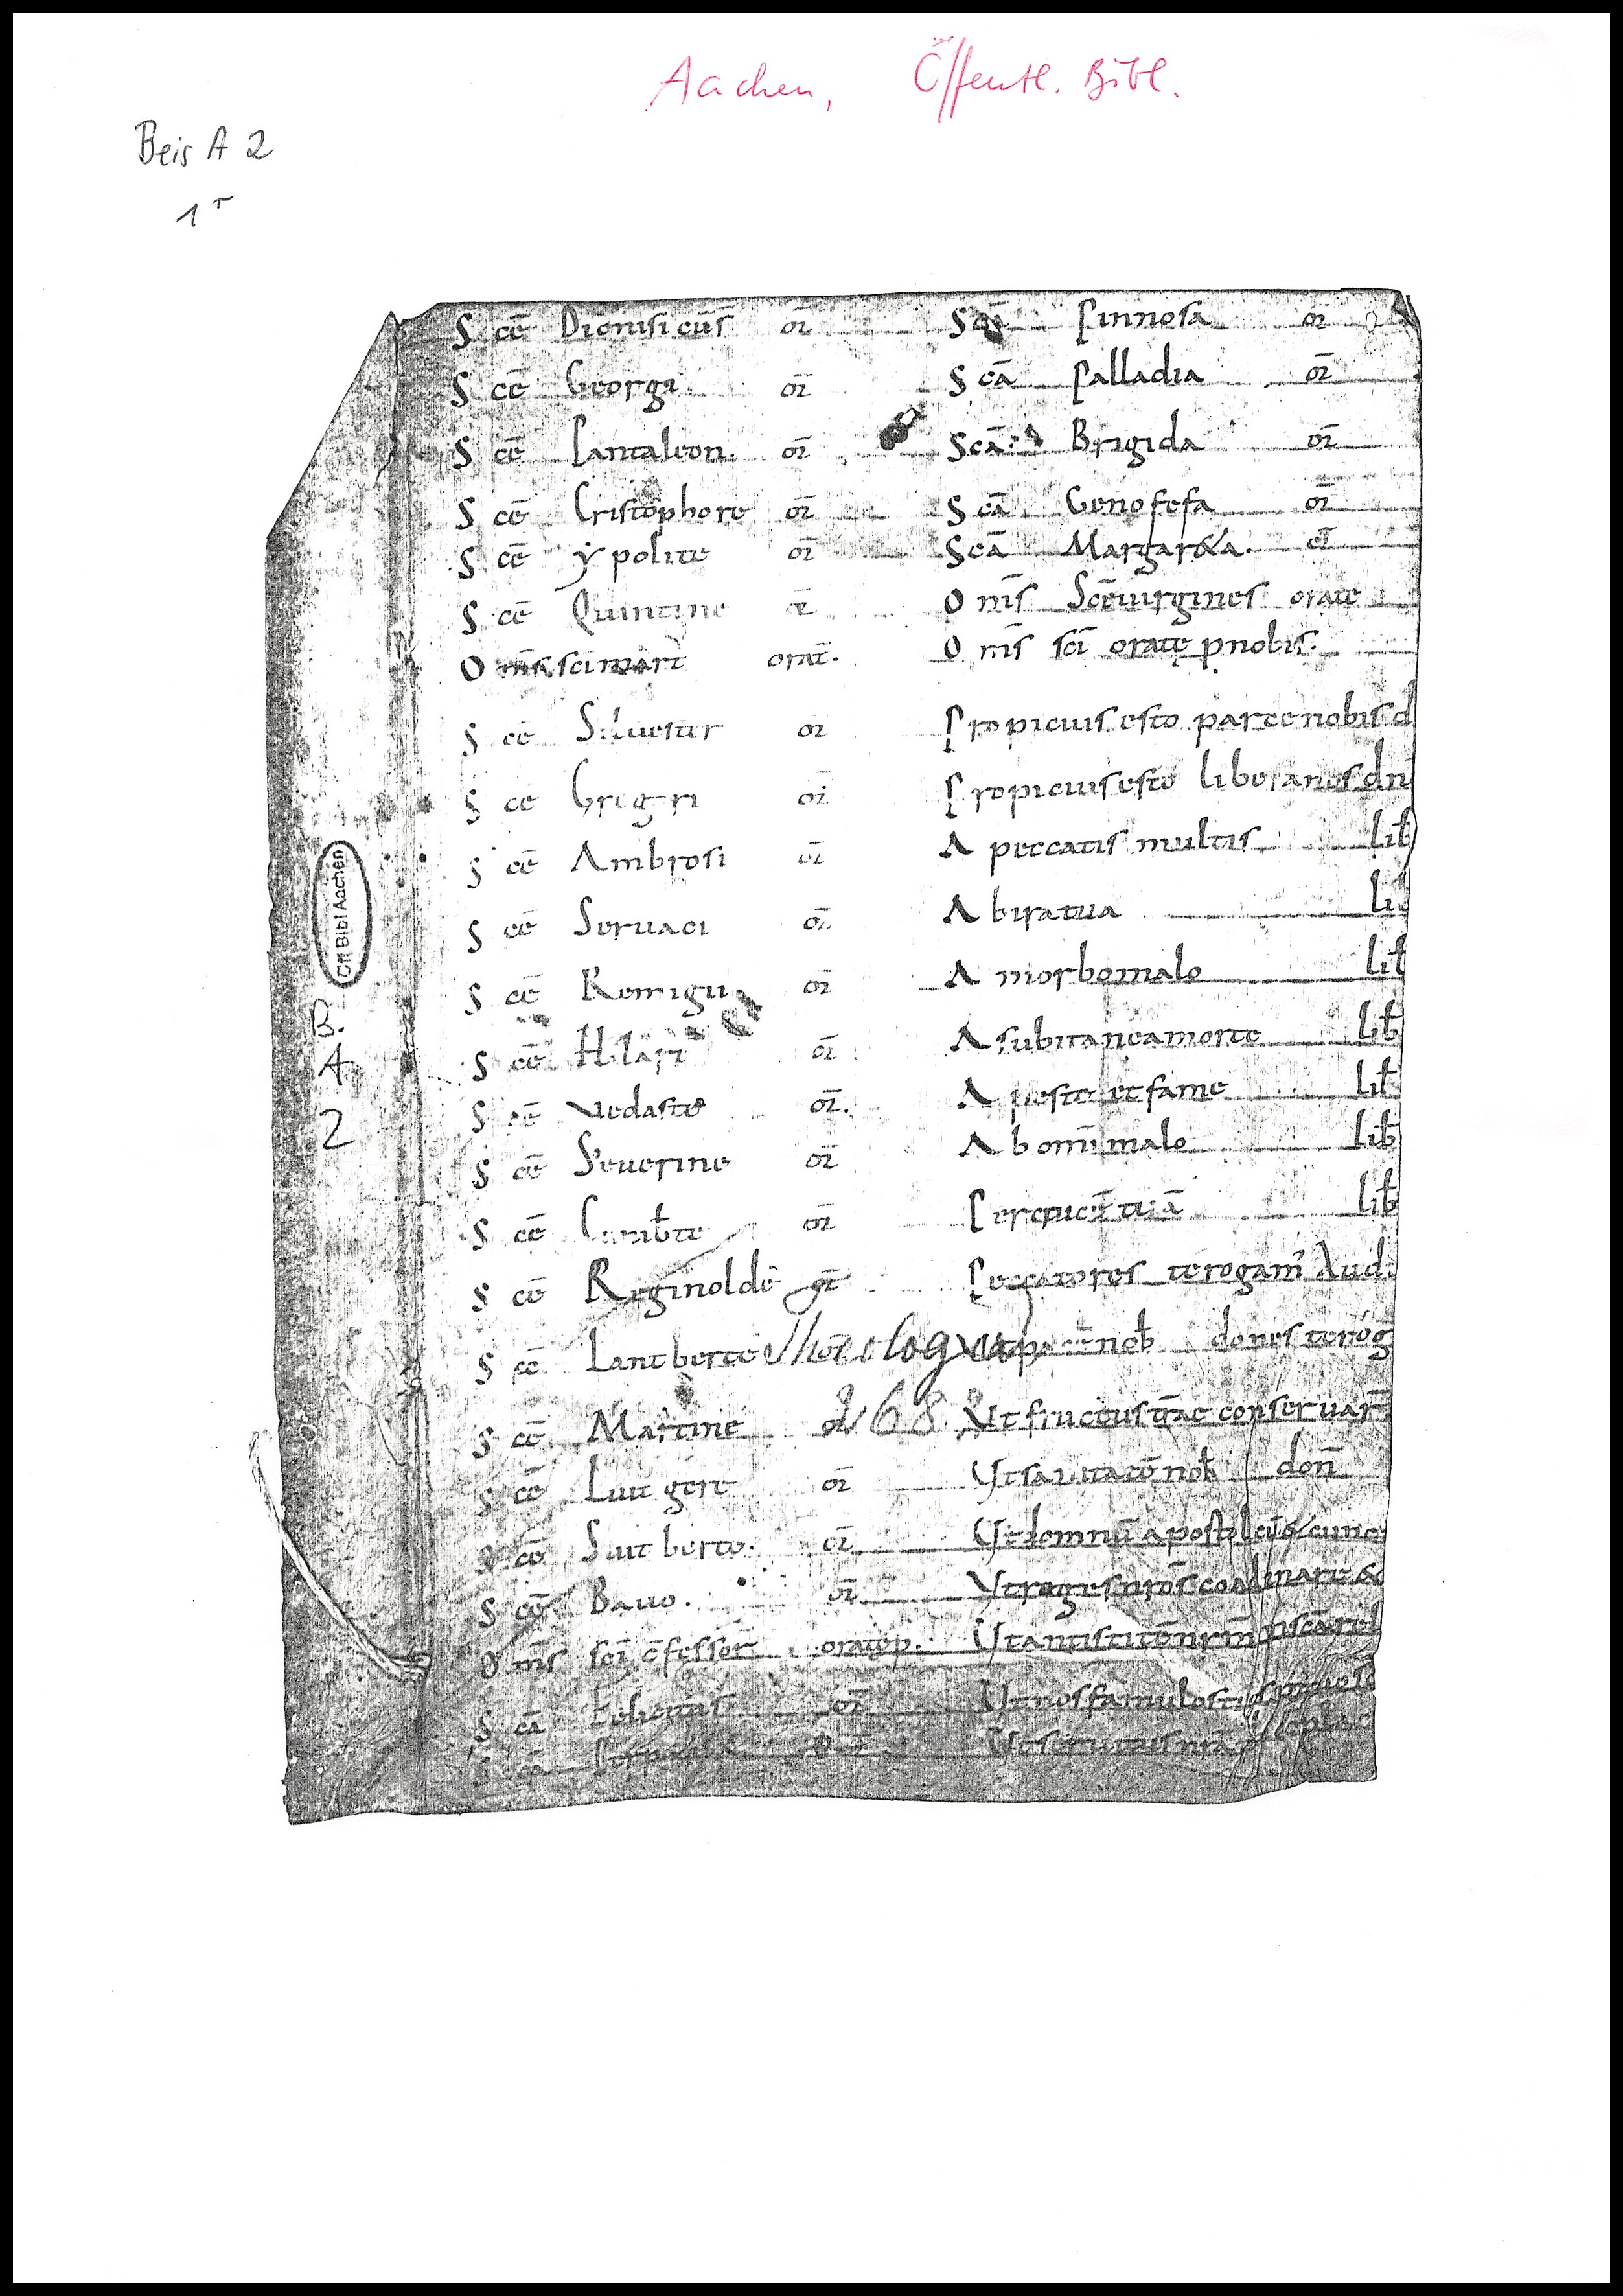 Aachen, Öffentl. Bibl.
Beis A 2
1r
S cē Dionisi cūs or̄
S cē Georgi or̄
S cē Pantaleon. or̄
S cē Cristophore or̄
S cē ẏpolite or̄
S cē Quintine or̄
O ms̄ sci mart orat̄.
S ce Siluester or
S ce Gregri or
S cē Ambrosi or̄
S cē Seruaci or̄
S cē Remigii or̄
S cē Hilari or̄
S cē Vedaste or̄.
S cē Seuerine or̄
S cē Cunib̄te or̄
S cē Reginolde or̄
S cē Lantberte or̄
S cē Martine or
S cē Luitgere or̄
S cē Suitberte. or̄
S cē Bauo. or̄
O ms̄ sci c̄fessor̄ orate p.
S cā Felicitas or̄
S cā
Scā Pinnosa or̄
S cā Palladia or̄
Scā Brigida or̄
S cā Genofefa or̄
Scā Margar&a. or̄
O ms̄ Scē uirgines orate
O ms̄ sci orate p nobis.
Propicius esto parce nobis d
Propicius esto libera nos dn̄
A peccatis multis lib̄
Ab ira tua lib
A morbo malo lib̄
A subitanea morte lib̄
A peste et fame lib̄
Ab om̄i malo lib̄
Per crucē tuā lib̄
Peccatores te rogam' Aud.
pacē nob̄ dones te rog
Ut fructus t̄rae conseruar̄
Ut sanitatē nob̄ don̄
Ut domnū apostolicū & cunc
Ut reges nros̄
Ut antistitē nrm̄
Ut nos famulos
Ut seruitus nrā
268
Öff Bibl Aachen
B.
A
2